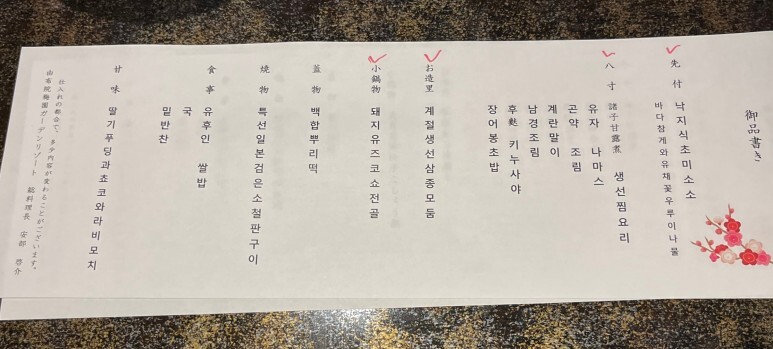 御品書き
先付 낙지식초미소소
바다참게와유채꽃우루이나물
八寸 諸子甘露煮 생선찜요리
유자 나마스
곤약 조림
계란말이
남경조림
후麩 키누사야
장어봉초밥
お造里 계절생선삼종모둠
小鍋物 돼지유즈코쇼전골
蓋物 백합뿌리떡
焼物 특선일본검은소철판구이
食事 유후인 쌀밥
국
밑반찬
甘味 딸기푸딩과쵸코와라비모치
仕入れの都合で、多少内容が変わることがございます。
由布院梅園ガーデンリゾート 総料理長 安部 啓介